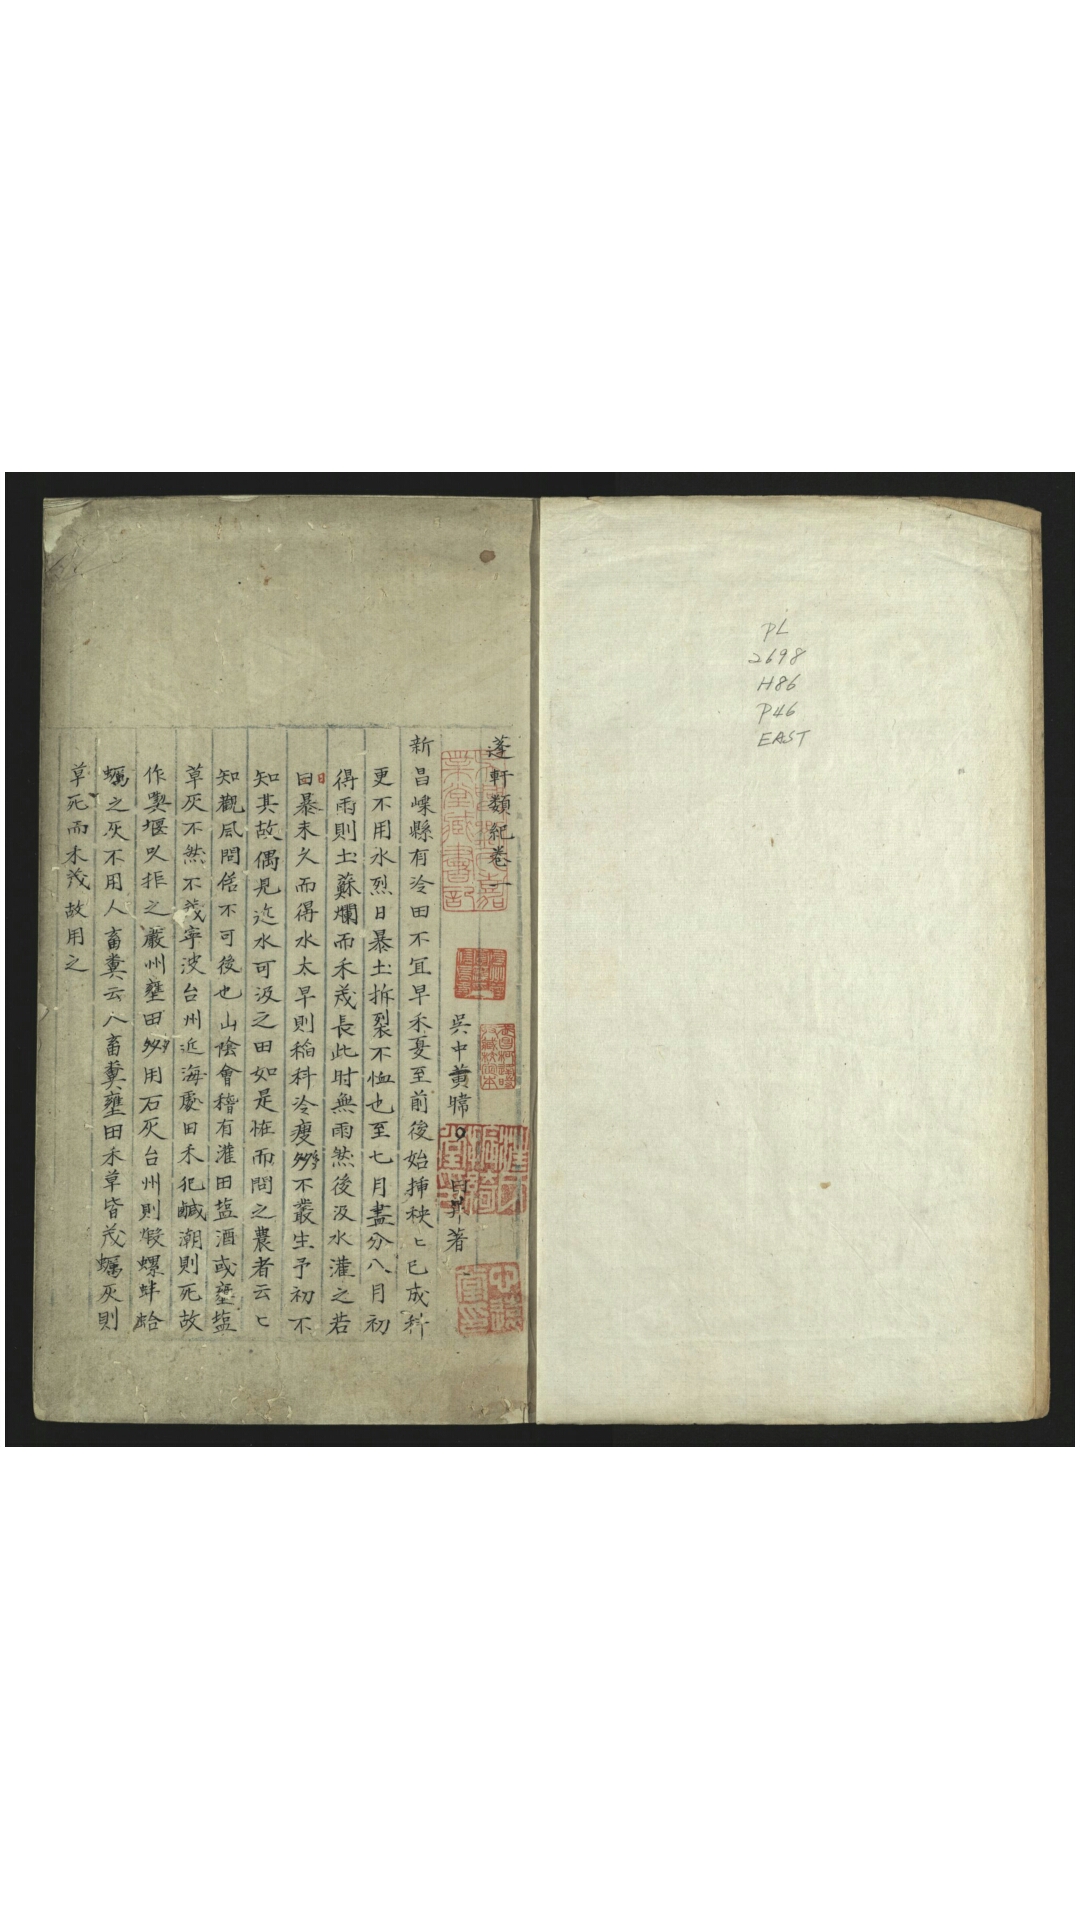 PL
2698
H86
P46
EAST
蓬軒類紀卷一
吳中黃暐日昇著
新昌嵊縣有冷田不宜早禾夏至前後始揷秧〻已成科
更不用水烈日暴土拆裂不恤也至七月盡分八月初
得雨則土蘇爛而禾茂長此时無雨然後汲水灌之若
日暴未久而得水太早則稲科冷瘦多不叢生予初不
知其故偶見近水可汲之田如是恠而問之農者云〻
知觀風問俗不可後也山陰會稽有灌田塩酒或壅塩
草灰不然不茂寧波台州近海處田禾犯鹹潮則死故
作碶堰以拒之嚴州壅田多用石灰台州則煆螺蚌蛤
蠣之灰不用人畜糞云人畜糞壅田禾草皆茂蠣灰則
草死而禾茂故用之